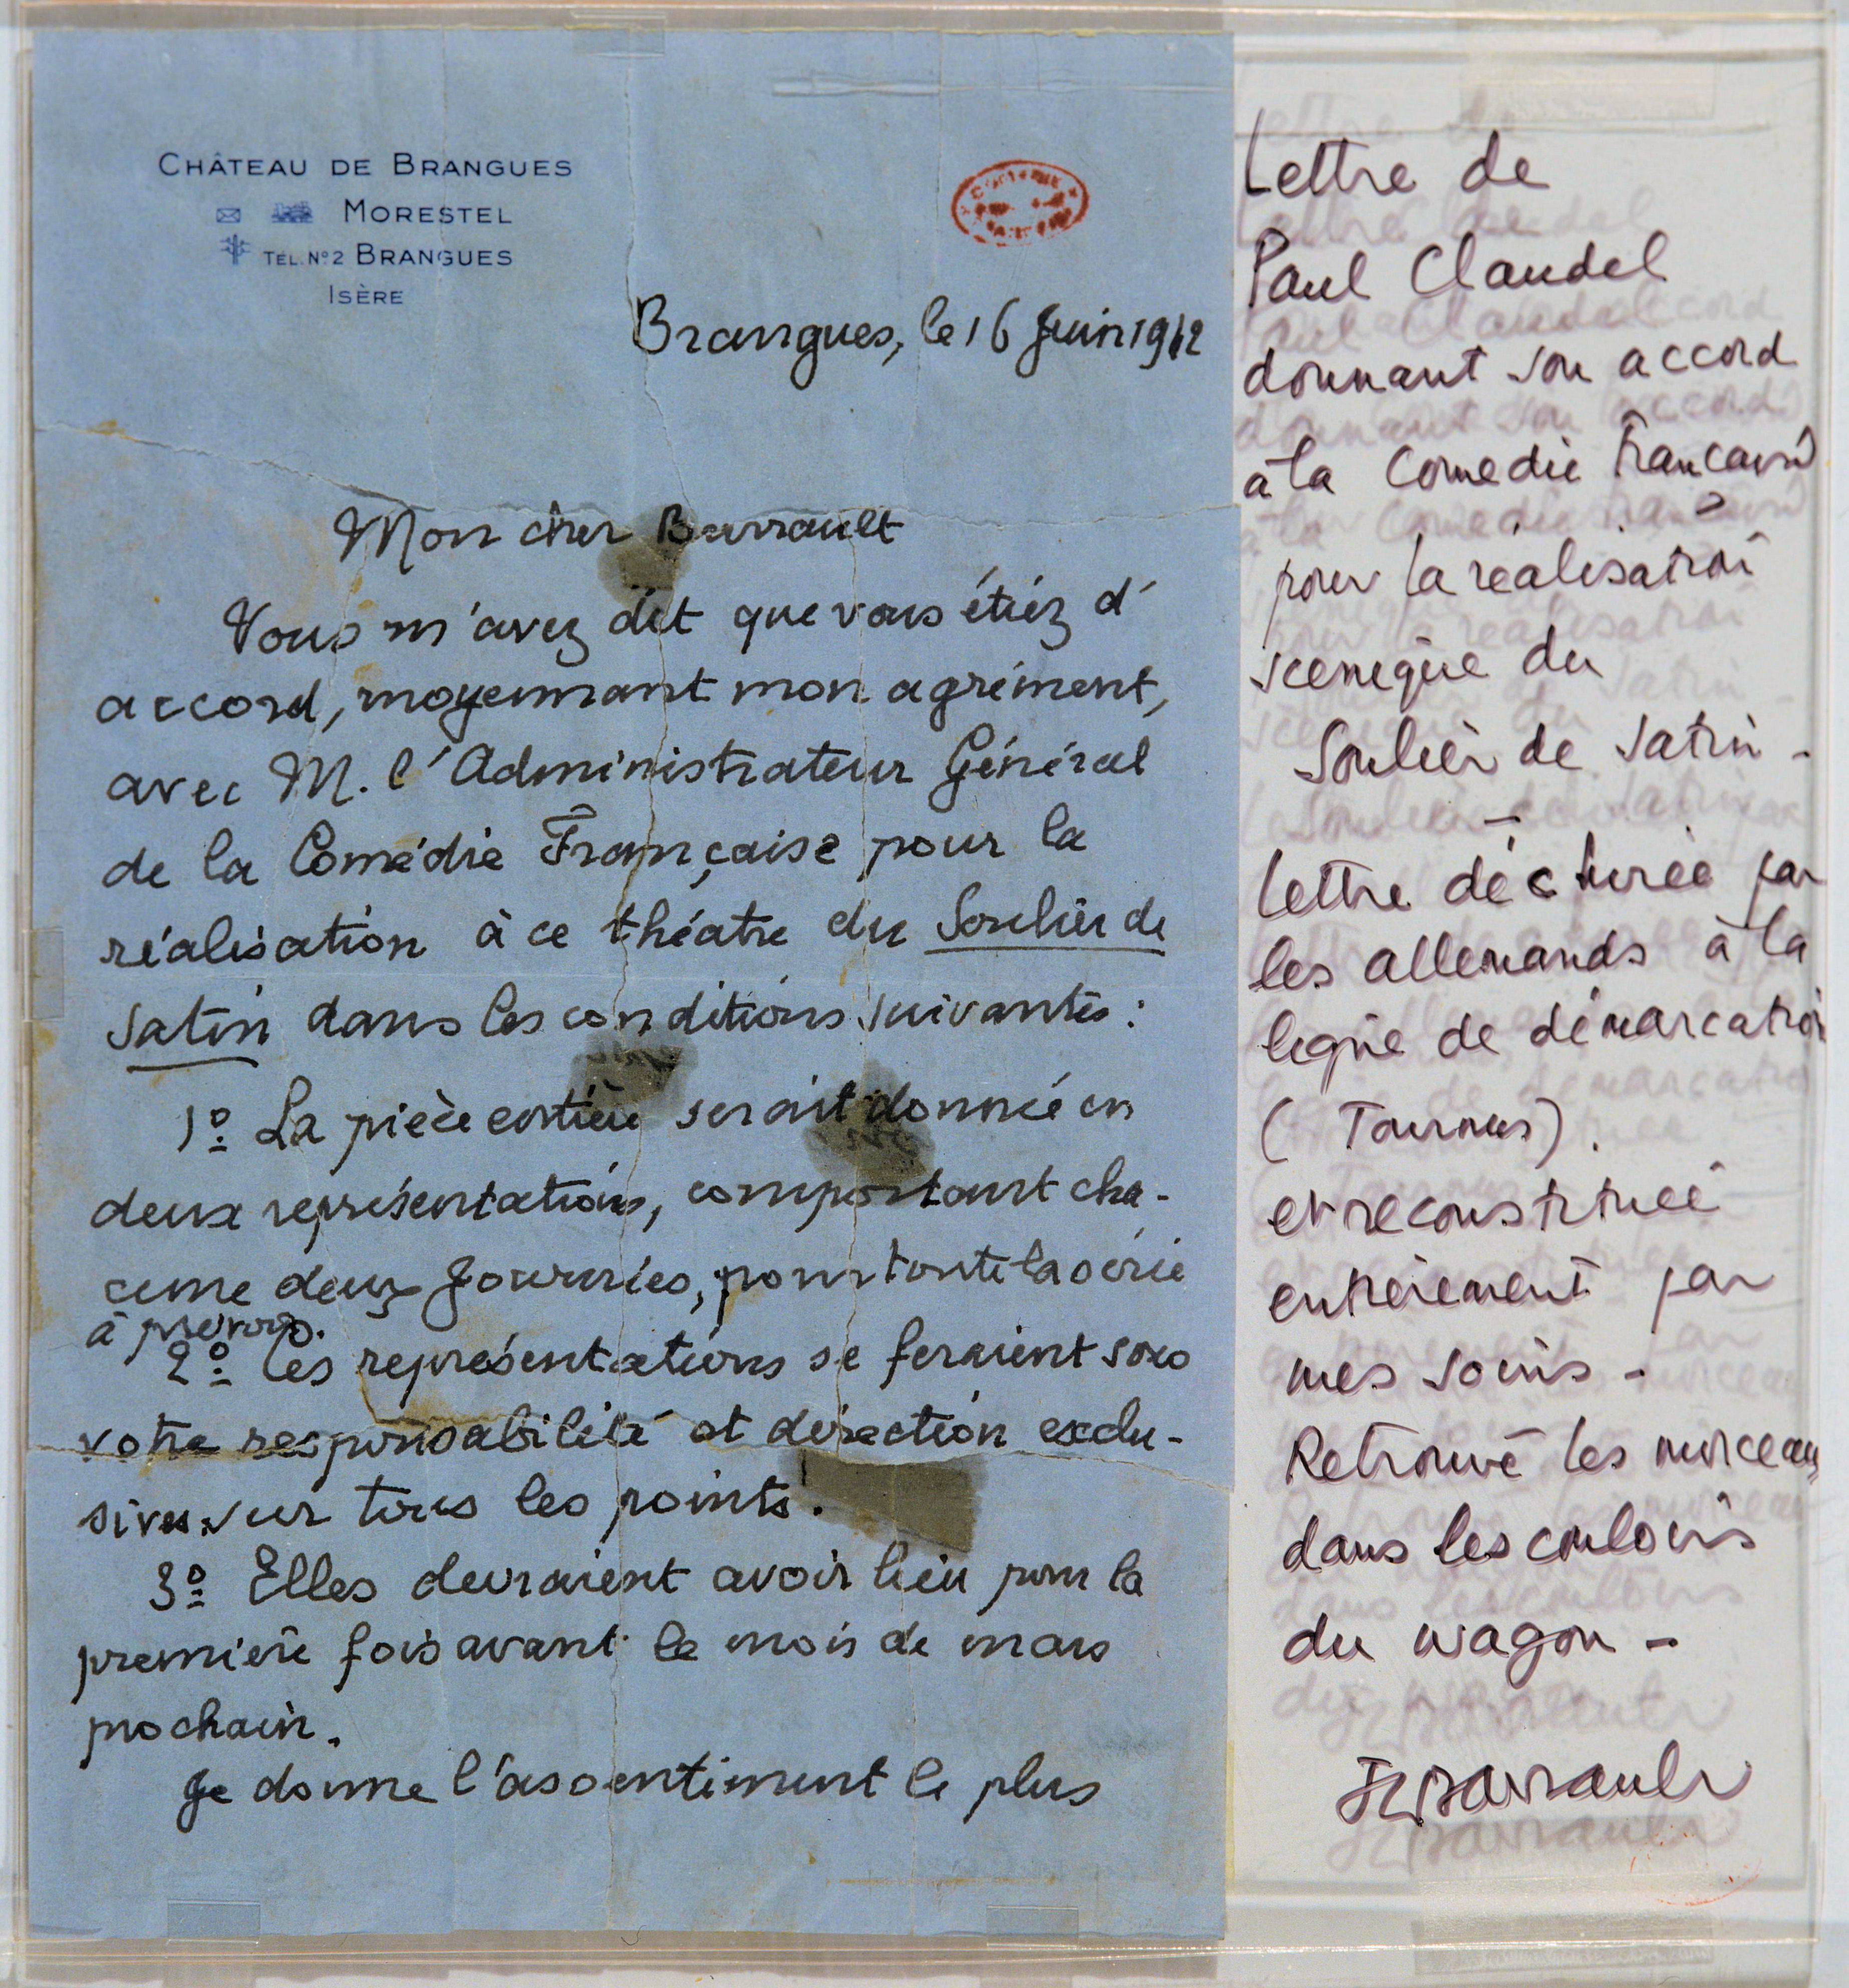 CHÂTEAU DE BRANGUES
MORESTEL
TÉL. Nº 2 BRANGUES
ISÈRE
Brangues, le 16 Juin 1942
Mon cher Barrault
Vous m'avez dit que vous étiez d'
accord, moyennant mon agrément,
avec M. l'Administrateur Général
de la Comédie Française pour la
réalisation à ce théatre du Soulier de
Satin dans les conditions suivantes :
1º La pièce entière serait donnée en
deux représentations, comportant cha-
cune deux Journées, pour toute la série
à prévoir.
2º Ces représentations se feraient sous
votre responsabilité et direction exclu-
sives sur tous les points.
3º Elles devraient avoir lieu pour la
première fois avant le mois de mars
prochain.
Je donne l'assentiment le plus
Lettre de
Paul Claudel
donnant son accord
à la Comedie Francaise
pour la réalisation
scenique du
Soulier de Satin -
-
Lettre déchirée par
les allemands à la
ligne de démarcation
( Tournus ).
et reconstituée
entièrement par
mes soins -
Retrouvé les morceaux
dans les couloirs
du wagon -
JLBarrault